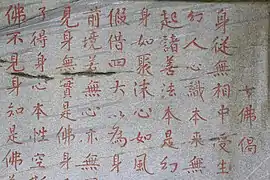 七佛偈
身從無相中受生
幻人心識本來無
起諸善法本是幻
身如聚沫心如風
假借四大以為身
前境若無心亦無
見身無實是佛身
了得身心本性空
佛不見身知是佛